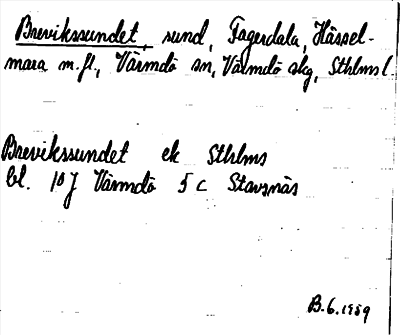 Brevikssundet, sund, Fagerdala, Hässel-
mara m.fl., Värmdö sn, Värmdö skg, Sthlms l.
Brevikssundet ek Sthlms
bl. 10 J Värmdö 5 c Stavsnäs
B.6.1959